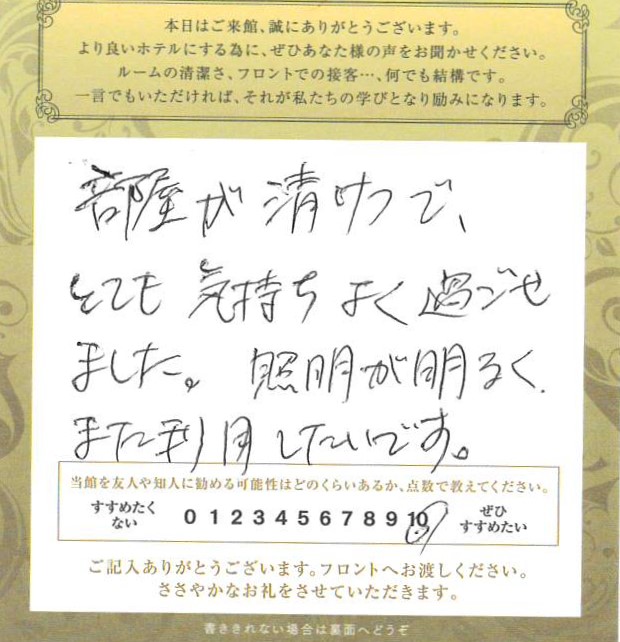 本日はご来館、誠にありがとうございます。
より良いホテルにする為に、ぜひあなた様の声をお聞かせください。
ルームの清潔さ、フロントでの接客…、何でも結構です。
一言でもいただければ、それが私たちの学びとなり励みになります。
部屋が清けつで、
とても気持ちよく過ごせ
ました。照明が明るく
また利用したいです。
当館を友人や知人に勧める可能性はどのくらいあるか、点数で教えてください。
すすめたくない 0 1 2 3 4 5 6 7 8 9 10 ぜひすすめたい
ご記入ありがとうございます。フロントへお渡しください。
ささやかなお礼をさせていただきます。
書ききれない場合は裏面へどうぞ